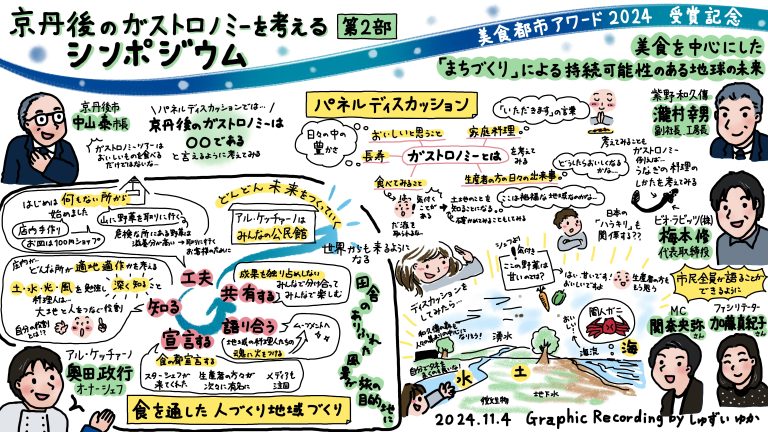 京丹後のガストロノミーを考える
シンポジウム
第2部
美食都市アワード2024 受賞記念
美食を中心にした
「まちづくり」による持続可能性のある地球の未来
京丹後市
中山泰市長
ガストロノミーツアーは
おいしいものを食べる
だけではないな…
\パネルディスカッションでは…/
京丹後のガストロノミーは
〇〇である
と言えるように考えてみる
パネルディスカッション
日々の中の
豊かさ
おいしいと思うこと
家庭料理
長寿
ガストロノミーとは
を考えて
みる
食べてみること
生産者の方の日々の出来事
「いただきます」の言葉
どうしたらおいしくなる
かな…
ここは裕福な地域なのかな…
気付く
ことが
ある
土地のことを
知ることになる
考えてみることも
ガストロノミー
例えば…
うなぎの料理の
しかたを考えてみる
日本の
「ハラキリ」も
関係する??
紫野和久傳
瀧村幸男
副社長 工房長
ビオ・ラビッツ(株)
梅本修
代表取締役
市民全員が語ることが
できるように
MC
関奈央弥さん
ファシリテーター
加藤真紀子さん
はじめは何もない所から
始めました
店内手作り
お皿は100円ショップ
山に野草を取りに行く
危険な所にある野草は
滋養分が高い→取りに行く
お客様のために
どんどん未来をつくっていく
アル・ケッチァーノは
みんなの公民館
世界からも来るように
なる
店内が
どんな所か適地適作かを考える
土・水・光・風を勉強し深く知ること
料理人は…
大地と人をつなぐ役割
自分の役割
とは!?
工夫
知る
共有する
宣言する
語り合う
成果を独り占めしない
みんなで分け合って
みんなで楽しむ
ムーブメントへ
地域の料理人たちの
魂に火をつける
食の都宣言する
スターシェフが
来てくれた
生産者の方々が
次々に有名に
メディアも
注目
田舎のありふれた
風景が旅の目的地に
アル・ケッチァーノ
奥田政行
オーナーシェフ
食を通した人づくり地域づくり
ディスカッションを
してみたら…
シェフより
気付き
この野菜は
甘いのでは?
はい、甘いです!
おいしいですよ
生産者の方も
もう思う
間人ガニ
おいしい
海流
湧水
水
土
海
地下水
微生物
2024.11.4 Graphic Recording by しゅずい ゆか